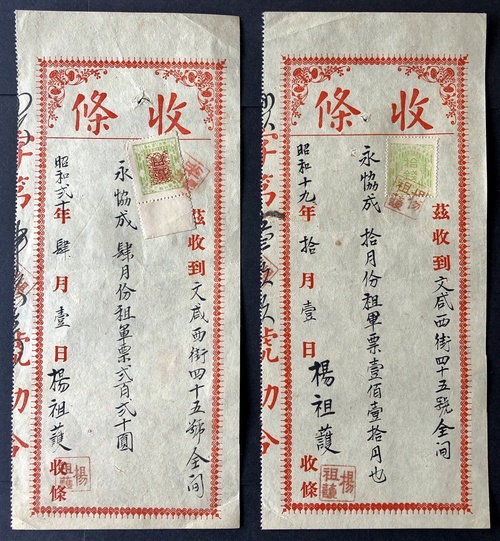 收條
茲收到文咸西街四十五號全间
永協成 肆月份租軍票弍百弍十圓
昭和弍十年肆月壹日楊祖護收條
楊祖護
收條
茲收到文咸西街四十五號全间
永協成 拾月份租軍票壹佰壹拾円也
昭和十九年拾月壹日楊祖護收條
楊祖護